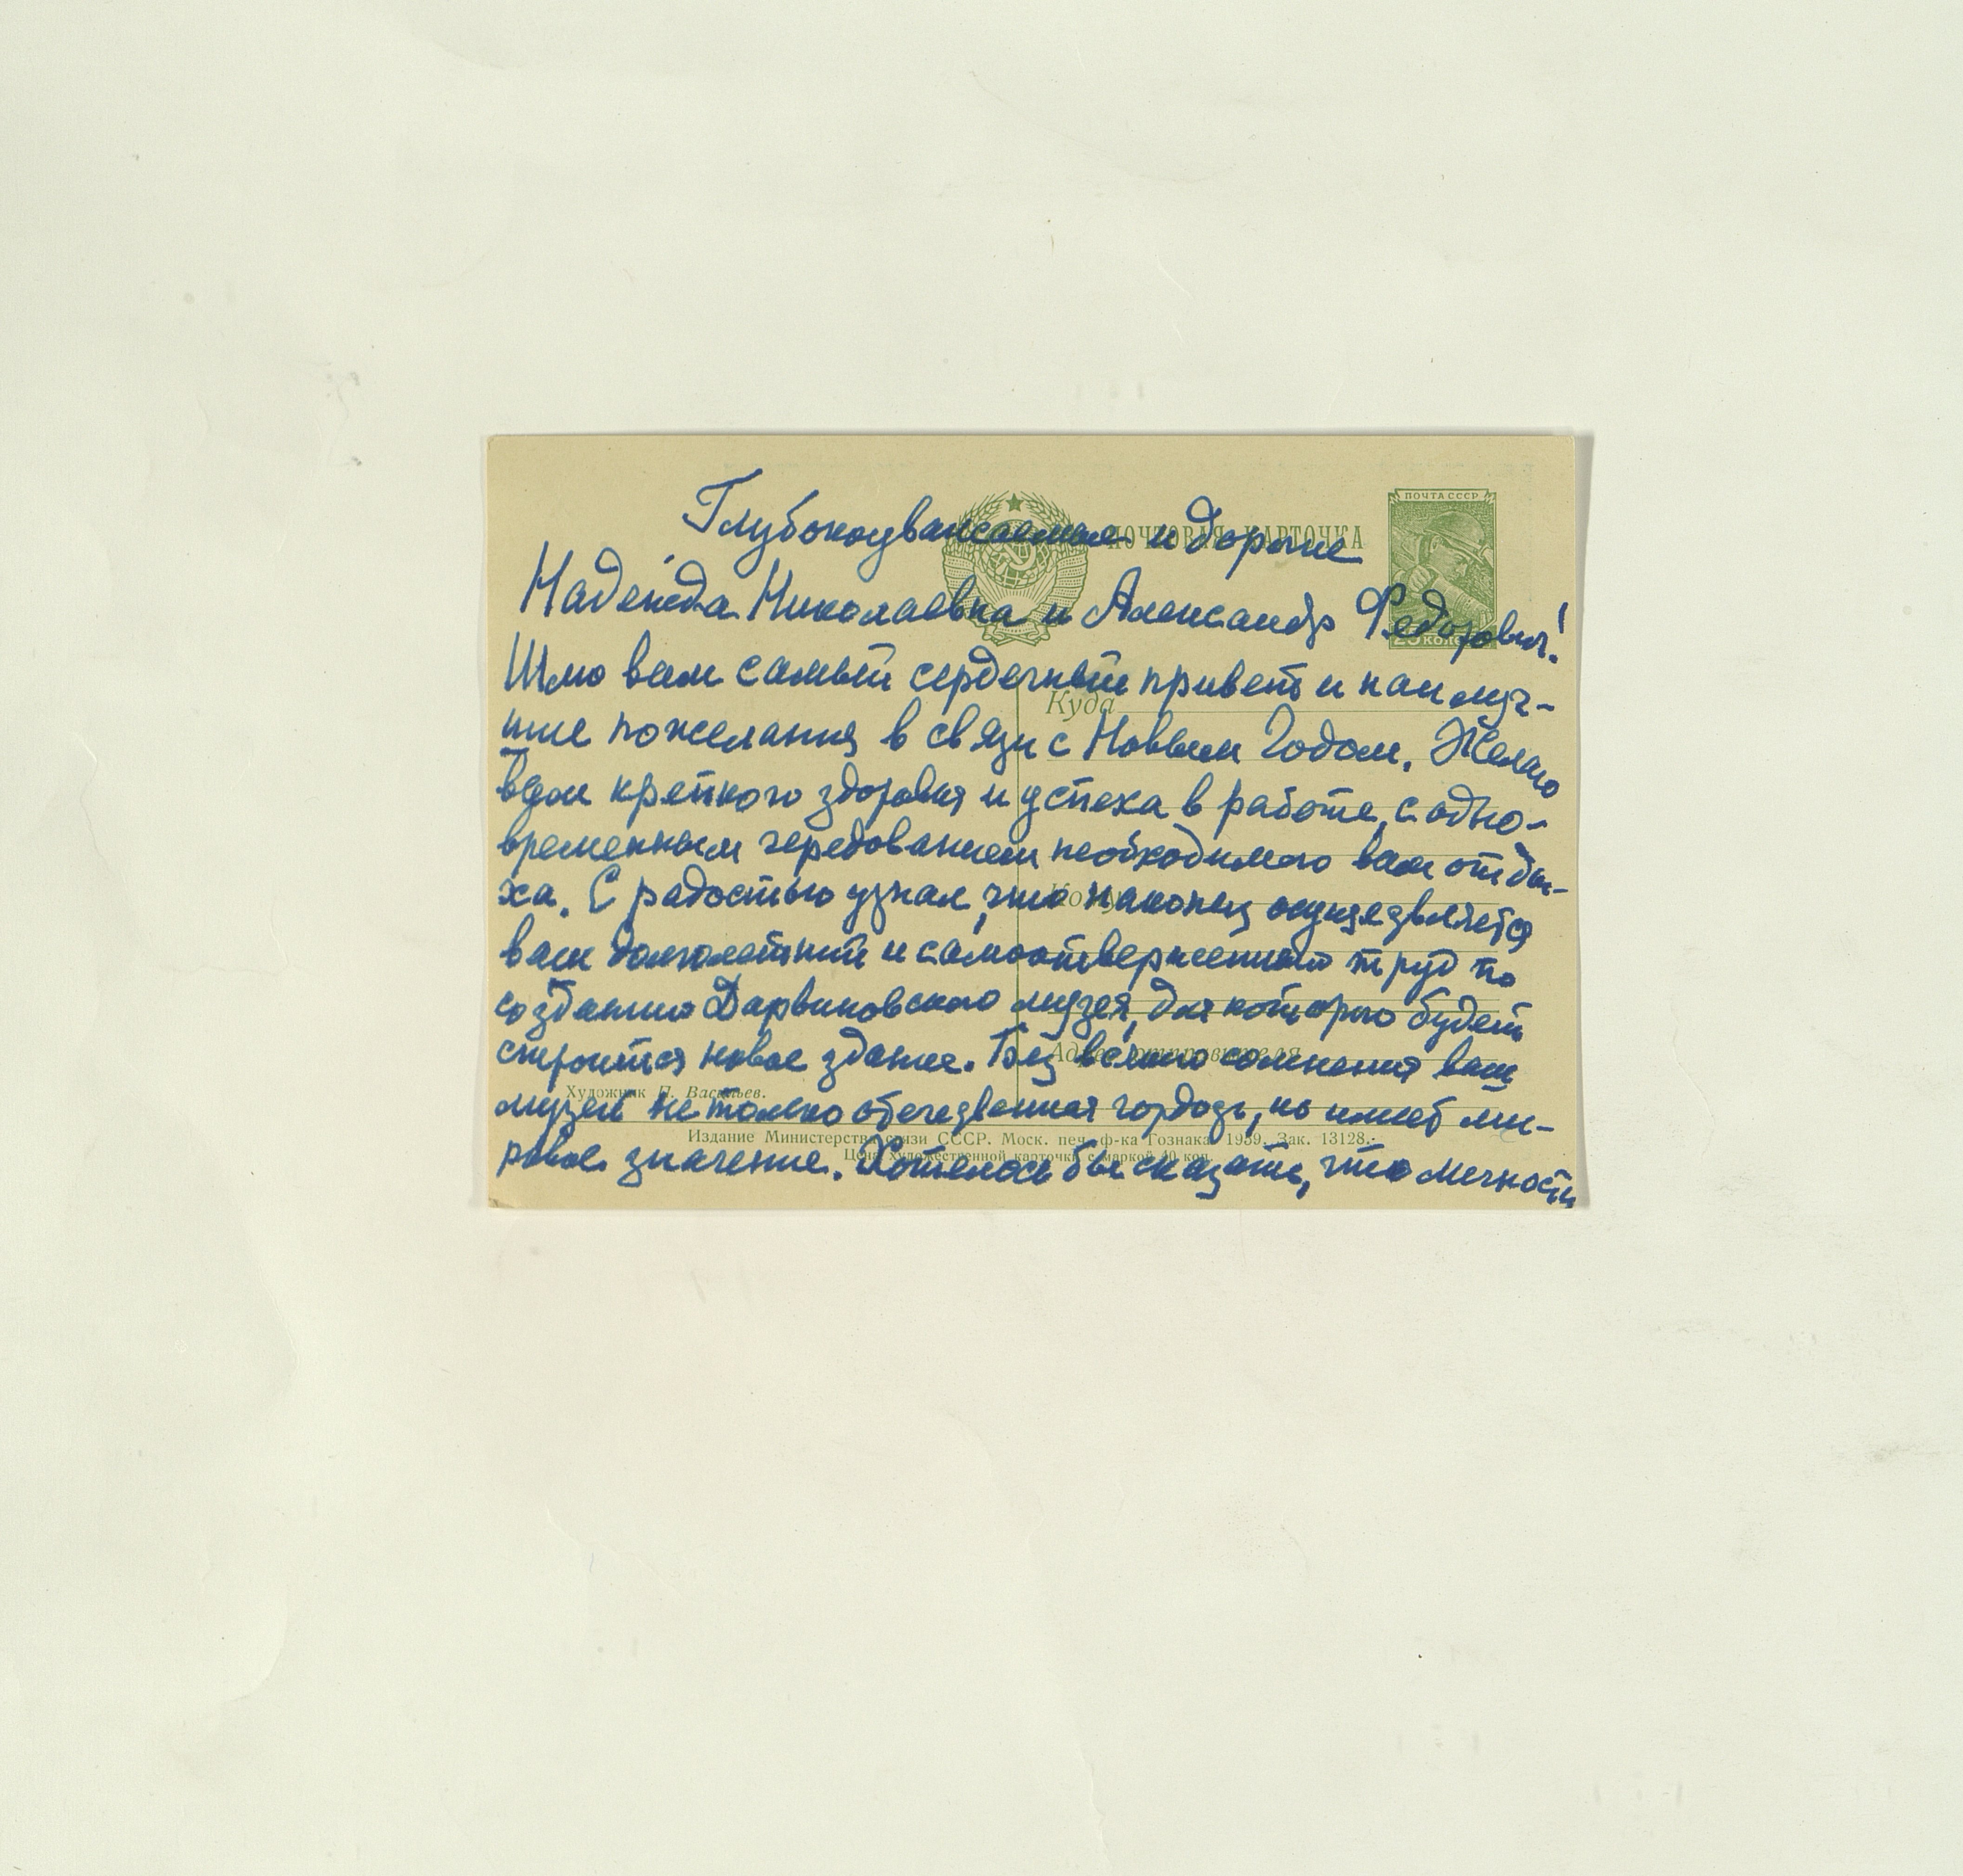 ПОЧТА СССР
ПОЧТОВАЯ КАРТОЧКА
Глубокоуважаемые и дорогие
Надежда Николаевна и Александр Федорович!
Шлю вам самый сердечный привет и наилуч-
шие пожелания в связи с Новым Годом. Желаю
вам крепкого здоровья и успеха в работе, с одно-
временным чередованием необходимого вам отды-
ха. С радостью узнал, что наконец осущезвляется
ваш долголетний и самоотверженный труд по
созданию Дарвиновского музея, для которого будет
строится новое здание. Без всякого сомнения ваш
музей не только отечезвенная гордозь, но имеет ми-
ровое значение. Хотелось бы сказать, что личности
Куда
Кому
Адрес отправителя
Художник П. Васильев.
Издание Министерства связи СССР. Моск. печ. ф-ка Гознака. 1959. Зак. 13128.
Цена художественной карточки с маркой 40 коп.